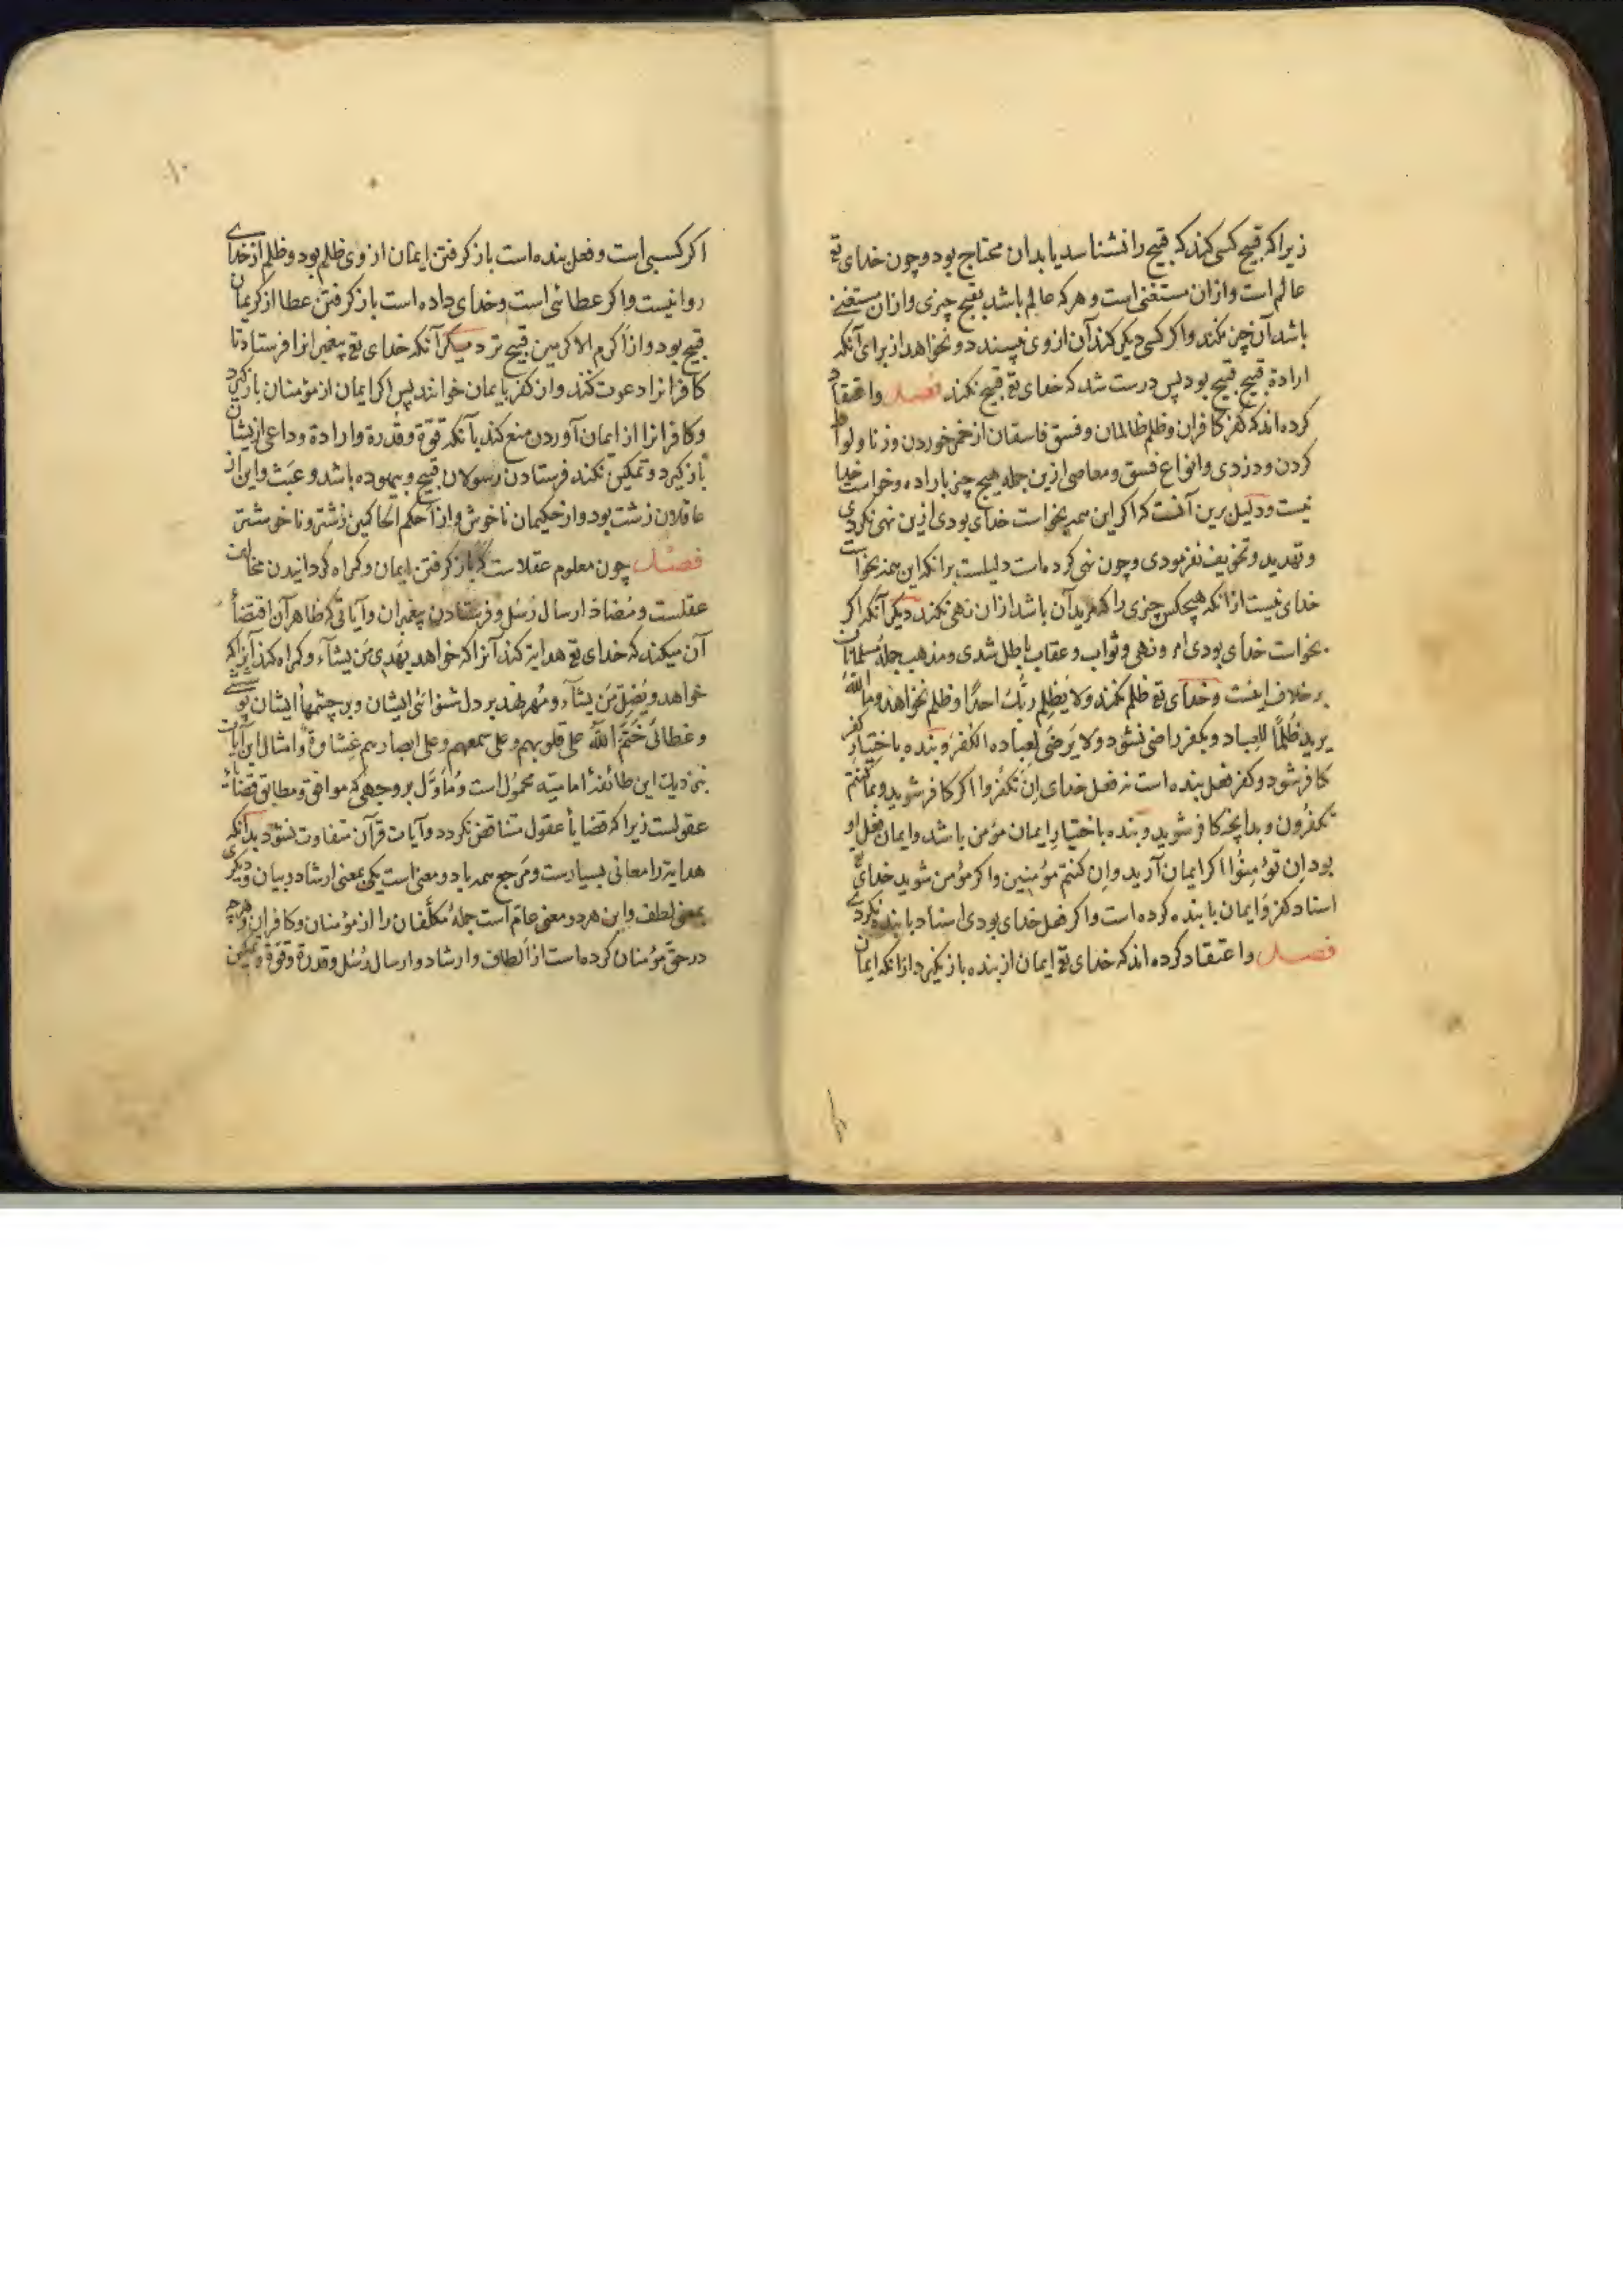 زیرا که قبیح کسی کند که قبیح را نشناسد یا بدان محتاج بود و چون خدای تع
عالم است و ازان مستغنی است و هر که عالم باشد بقبح چیزی و ازان مستغنی
باشد آن چیز نکند و اکر کسی دیکر کند آن از وی نپسندد و نخواهد از برای آنکه
ارادة قبیح قبیح بود پس درست شد که خدای تع قبیح نکند فصل واعتقاد
کرده اند که کفر کافران و ظلم ظالمان و فسق فاسقان از خمر خوردن و زنا و لواط
کردن و دزدی و انواع فسق و معاصی ازین جمله هیچ چیز باراده و خواست خدا
نیست و دلیل برین آنست که اکر این همه بخواست خدای بودی ازین نهی نکردی
و تهدید و تخویف نفرمودی و چون نهی کرده است دلیلست برانکه این همه بخواست
خدای نیست ازانکه هیچکس چیزی را که مرید آن باشد ازان نهی نکند دیکر آنکه اکر
بخواست خدای بودی امر و نهی و ثواب و عقاب باطل شدی و مذهب جملهٔ مسلمانان
بر خلاف اینست و خدای تع ظلم نکند ولا یظلم ربک احدًا و ظلم نخواهد وما الله
یرید ظلمًا للعباد و بکفر راضی نشود ولا یرضی لعباده الکفر و بنده باختیار کفر
کافر شود و کفر فعل بنده است نه فعل خدای ان تکفروا اکر کافر شوید وبما کنتم
تکفرون و بدانچه کافر شوید و بنده باختیار ایمان مؤمن باشد و ایمان فعل او
بود ان تؤمنوا اکر ایمان آرید وان کنتم مؤمنین و اکر مؤمن شوید خدای تع
اسناد کفر و ایمان با بنده کرده است و اکر فعل خدای بودی اسناد با بنده نکردی
فصل واعتقاد کرده اند که خدای تع ایمان از بنده باز نکیرد ازانکه ایمان
۱۰
اکر کسبی است و فعل بنده است باز کرفتن ایمان از وی ظلم بود و ظلم از خدای
روا نیست و اکر عطائی است و خدای داده است باز کرفتن عطا از کریمان
قبیح بود و از اکرم الاکرمین قبیح تر دیکر آنکه خدای تع پیغمبرانرا فرستاد تا
کافرانرا دعوت کنند و از کفر بایمان خوانند پس اکر ایمان از مؤمنان باز کیرد
و کافرانرا از ایمان آوردن منع کند بآنکه قوّة و قدرة و ارادة و داعی ازیشان
باز کیرد و تمکین نکند فرستادن رسولان قبیح و بیهوده باشد و عبث و این از
عاقلان زشت بود و از حکیمان ناخوش و از احکم الحاکمین زشتر و ناخوشتر
فصل چون معلوم عقلاست که باز کرفتن ایمان و کمراه کردانیدن مخالف
عقلست و مضاد ارسال رسل و فرستادن پیغمبران و آیاتی که ظاهر آن اقتضأ
آن میکند که خدای تع هدایة کند آنرا که خواهد یهدی من یشآء و کمراه کند آنرا که
خواهد ویضل من یشآء و مهر نهد بر دل شنوائی ایشان و بر چشمهأ ایشان پوششی
و غطائی ختم الله علی قلوبهم وعلی سمعهم وعلی ابصارهم غشاوة و امثال این آیات
بنزدیک این طائفهٔ امامیّه محمول است و مأوّل بر وجهی که موافق و مطابق قضأ
عقولست زیرا که قضایأ عقول متناقض نکردد و آیات قرآن متفاوت نشود بدانکه
هدایة را معانی بسیارست و مرجع همه با دو معنی است یکی بمعنی ارشاد و بیان و دیکری
بمعنی لطف و این هر دو معنی عام است جملهٔ مکلّفان را از مؤمنان و کافران و هرچه
در حقّ مؤمنان کرده است از الطاف و ارشاد و ارسال رسل و قدرة و قوّة و تمکین